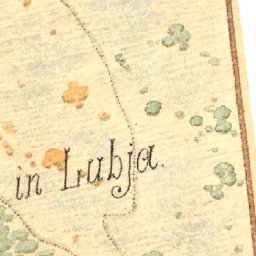 in Lubja.